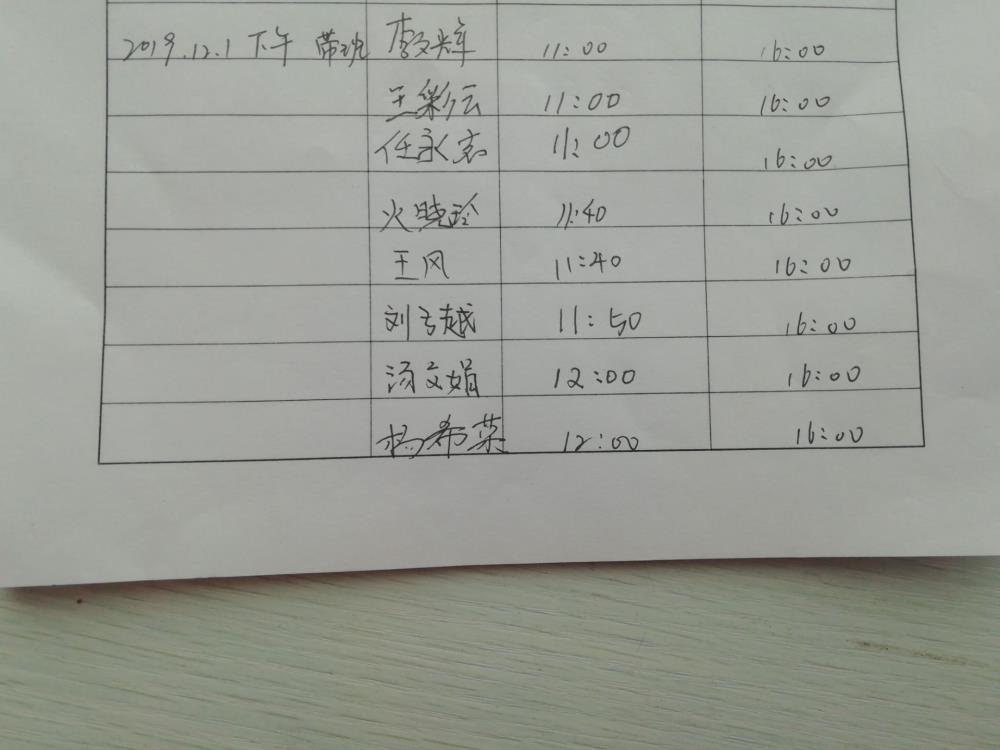 2019.12.1 下午 带班 李文辉 11:00 16:00
王彩云 11:00 16:00
任永志 11:00 16:00
火晓玲 11:40 16:00
王风 11:40 16:00
刘弓越 11:50 16:00
汤文娟 12:00 16:00
杨希荣 12:00 16:00